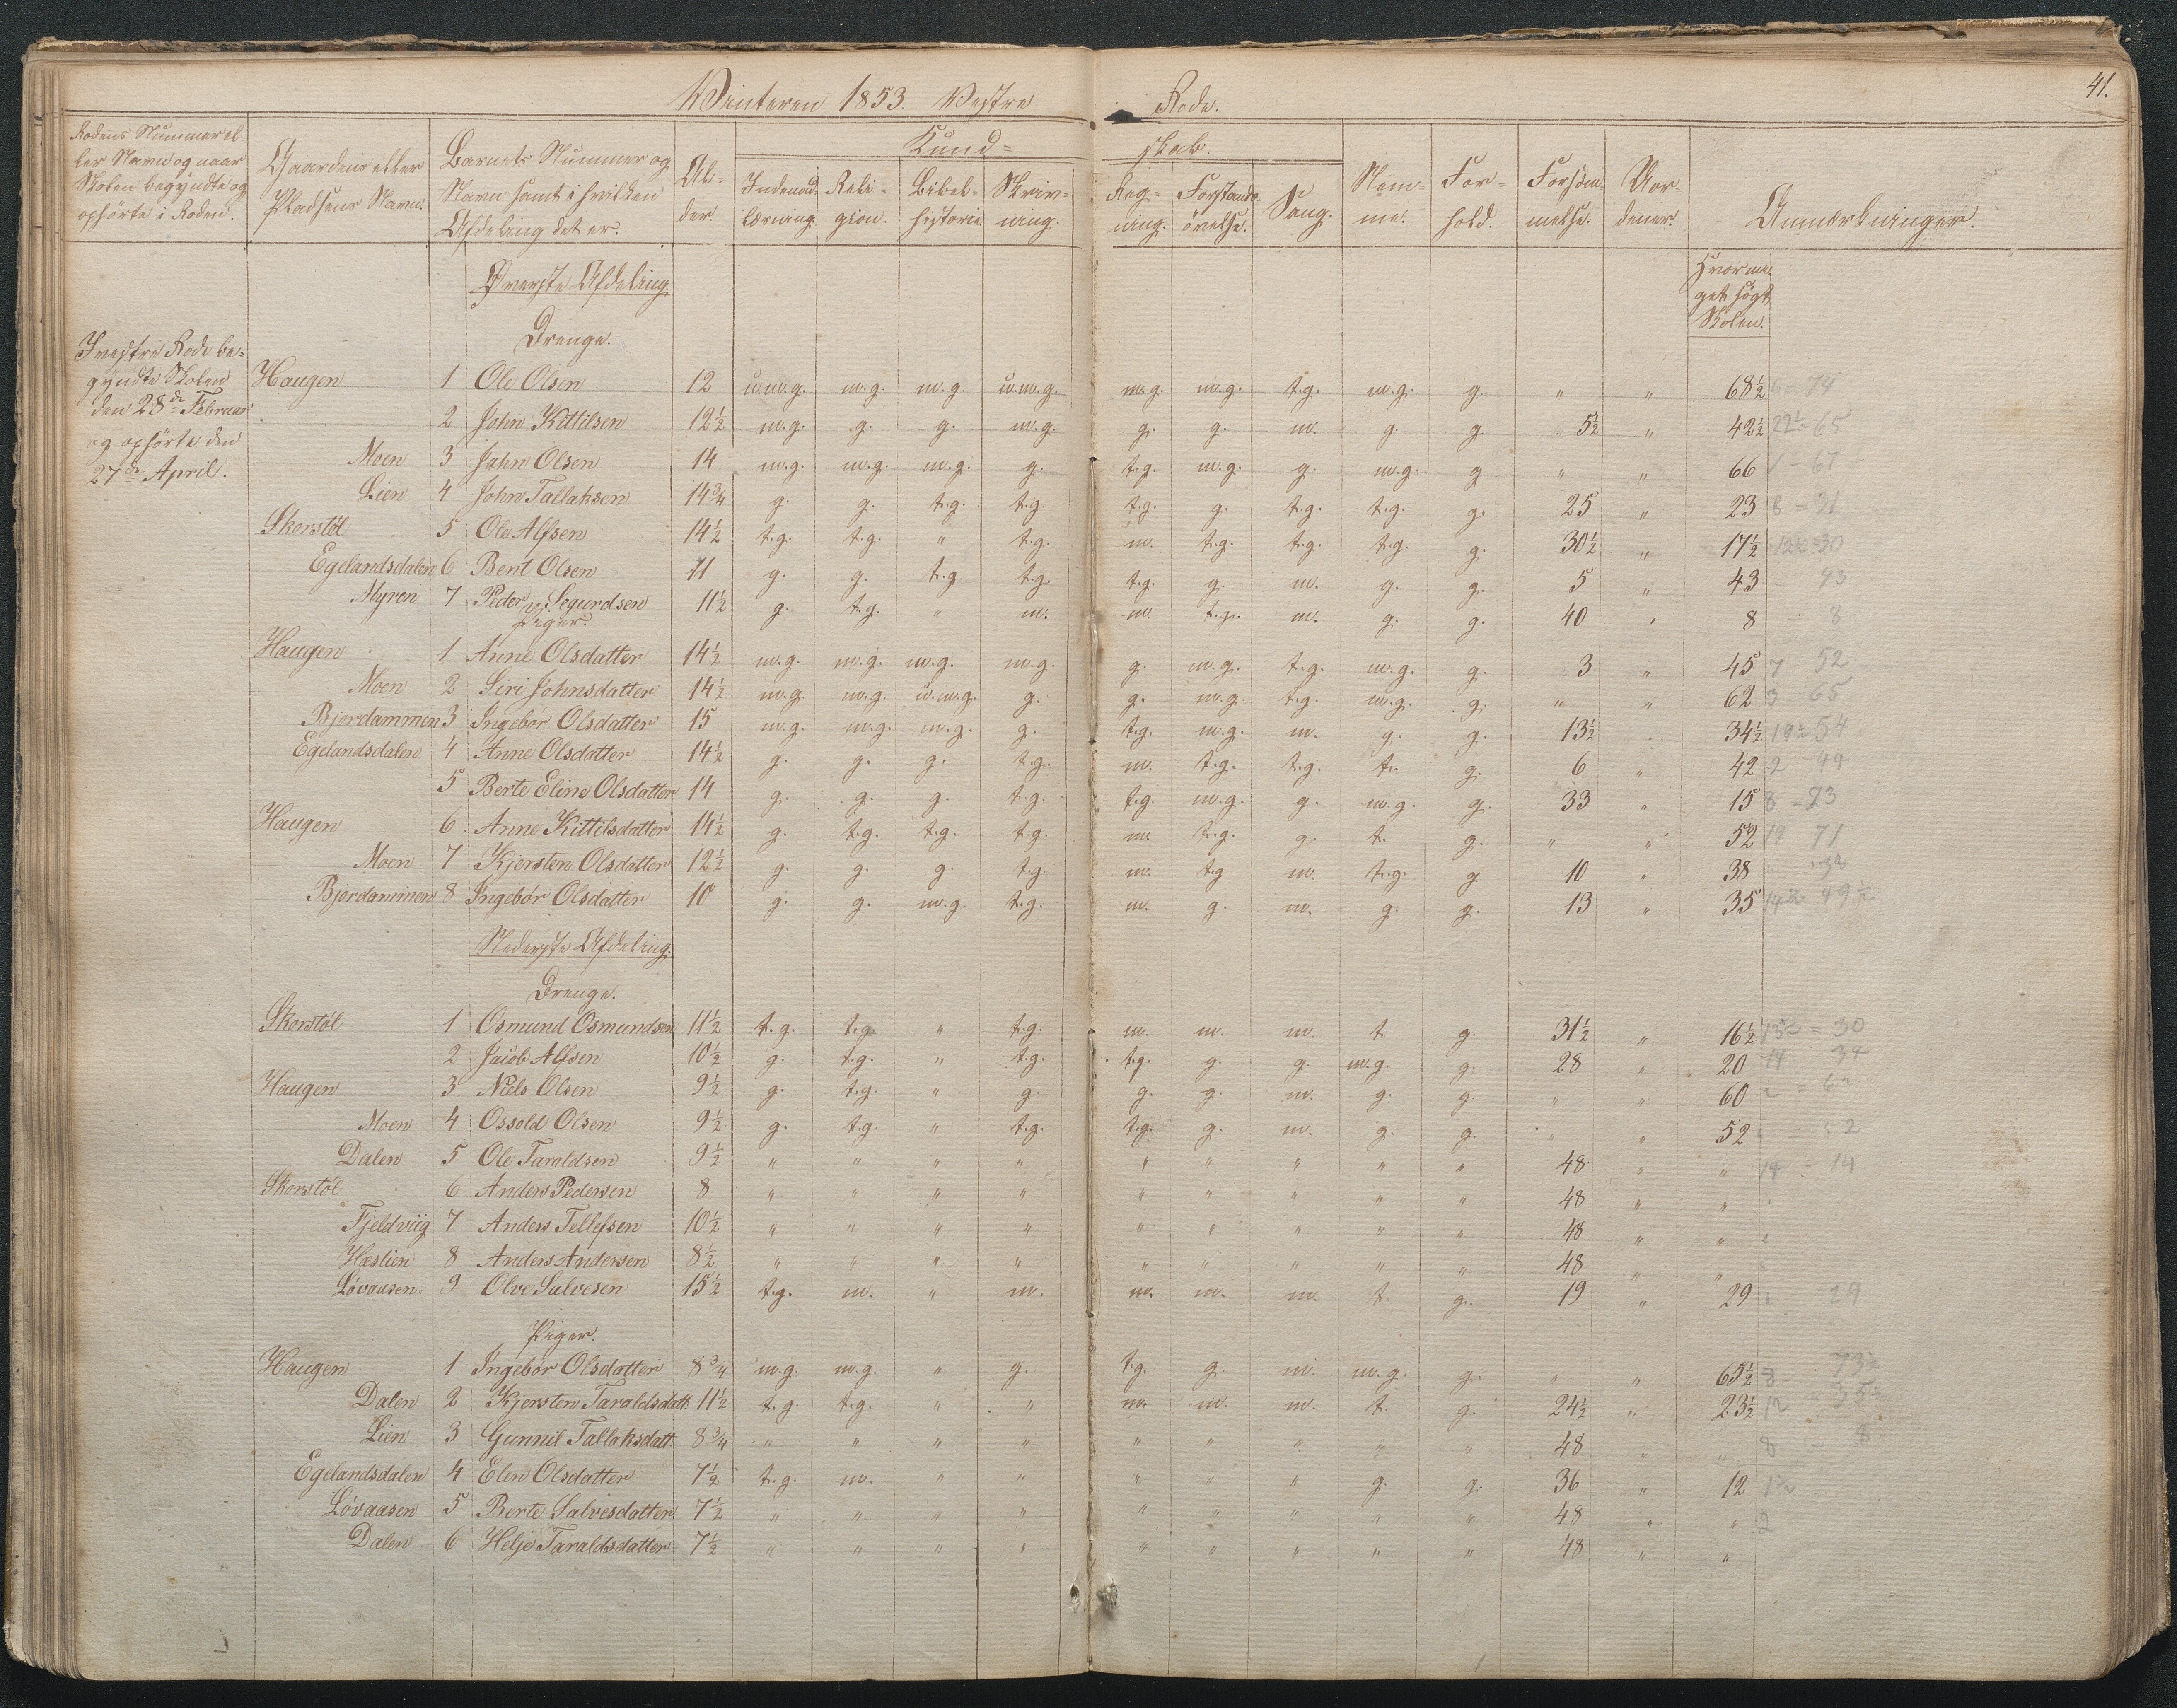 41.
Winteren 1853. Vestre Rode.
Rodens Nummer el- ler Navn og naar Skolen begyndte og ophörte i Roden. | Gaardens eller Pladsens Navn. | Barnets Nummer og Navn samt i hvilken Afdeling det er. | Al- der. | Kund= skab. | Nem= me. | For= hold. | Forsöm- melse. | Vor- dener. | Anmærkninger.
Indenad- læsning. | Reli- gion. | Bibel- historie. | Skriv- ning. | Reg- ning. | Forstands- övelse. | Sang.
Hvor me- get søgt Skolen.
I vestre Rode be-
gyndte Skolen
den 28de Februar
og ophörte den
27de April.
Øverste Afdeling.
Drenge.
Haugen 1 Ole Olsen 12 u.m.g. m.g. m.g. u.m.g. m.g. m.g. t.g. m.g. g. " " 68½ 6 = 74
2 John Kittilsen 12½ m.g. g. g. m.g. g. g. m. g. g. 5½ " 42½ 22½ - 65
Moen 3 Jahn Olsen 14 m.g. m.g. m.g. g. t.g. m.g. g. m.g. g " " 66 1 - 67
Lien 4 John Tallaksen 14¾ g. g. t.g. t.g. t.g. g. t.g. t.g. g. 25 " 23 8 = 31
Skorstøl 5 Ole Alfsen 14½ t.g. t.g. " t.g. m. t.g. t.g. t.g. g. 30½ " 17½ 12½ = 30
Egelandsdalen 6 Bent Olsen 11 g. g. t.g. t.g. t.g. g. m. g. g. 5 " 43 - 43
Myren 7 Peder Segurdsen 11½ g. t.g. " m. m. t.g. m. g. g. 40 " 8 - 8
Piger.
Haugen 1 Anne Olsdatter 14½ m.g. m.g. m.g. m.g. g. m.g. t.g. m.g. g. 3 " 45 7 52
Moen 2 Siri Johnsdatter 14½ m.g. m.g. u.m.g. g. g. m.g. t.g. m.g. g. " " 62 3 65
Bjordammen 3 Ingebor Olsdatter 15 m.g. m.g. m.g. g. t.g. m.g. m. g. g. 13½ " 34½ 19½ 54
Egelandsdalen 4 Anne Olsdatter 14½ g. g. g. t.g. m. t.g. t.g. t. g. 6 " 42 2 - 44
5 Berte Eline Olsdatter 14 g. g. g. t.g. t.g. m.g. g. m.g. g. 33 " 15 8 - 23
Haugen 6 Anne Kittilsdatter 14½ g. t.g. t.g. t.g. m. t.g. g. t. g. " " 52 19 71
Moen 7 Kjersten Olsdatter 12½ g. g. g. t.g m. t.g m. t.g. g 10 " 38 38
Bjordammen 8 Ingebor Olsdatter 10 g. g. m.g. t.g. m. g. m. g. g. 13 " 35 14½ 49½
Nederste Afdeling.
Drenge.
Skorstøl 1 Osmund Osmundsen 11½ t.g. t.g. " t.g. m. m. m. t. g. 31½ " 16½ 13½ = 30
2 Jacob Alfsen 10½ g. t.g. " t.g. t.g. g. g. m.g. g. 28 " 20 14 34
Haugen 3 Niels Olsen 9½ g. t.g. " g. g. g. m. g. g. " " 60 2 = 62
Moen 4 Ossold Olsen 9½ g. t.g. " t.g. t.g. g. m. g. g. " " 52 = 52
Dalen 5 Ole Taraldsen 9½ " " " " " " " " " 48 " " 14 - 14
Skorstøl 6 Anders Pedersen 8 " " " " " " " " " 48 " "
Fjeldviig 7 Anders Tellefsen 10½ " " " " " " " " " 48 " "
Hæslien 8 Anders Andersen 8½ " " " " " " " " " 48 " "
Løvaasen 9 Olve Salvesen 15½ t.g. m. " m. m. m. m. t. g. 19 " 29 29
Piger.
Haugen 1 Ingebor Olsdatter 8¾ m.g. m.g. " g. t.g. g. m. m.g. g. " " 65½ 8 73½
Dalen 2 Kjersten Taraldsdatt. 11½ t.g. t.g. " " m. m. m. t. g. 24½ " 23½ 12 35½
Lien 3 Gunnil Tallaksdatt. 8¾ " " " " " " " " " 48 " " 8 - 8
Egelandsdalen 4 Elen Olsdatter 7½ t.g. m. " " " " " g. g. 36 " 12 12
Løvaasen 5 Berte Salvesdatter 7½ " " " " " " " " " 48 " " 2
Dalen 6 Helje Taraldsdatter 7½ " " " " " " " " " 48 " "